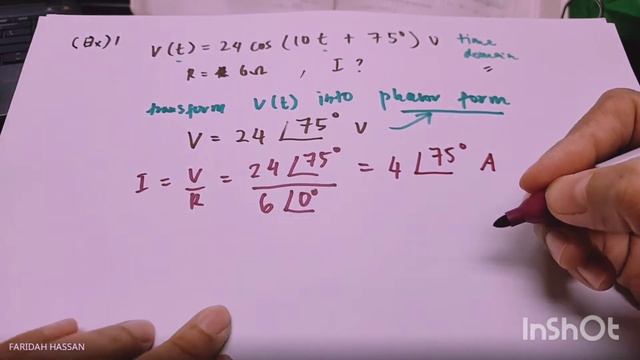 (Ex) 1
V(t) = 24 cos (10t + 75°) V time domain
R = 6Ω , I ?
transform V(t) into phasor form
V = 24 ∠75° V
I = V/R = 24 ∠75° / 6 ∠0° = 4 ∠75° A
InShOt
FARIDAH HASSAN